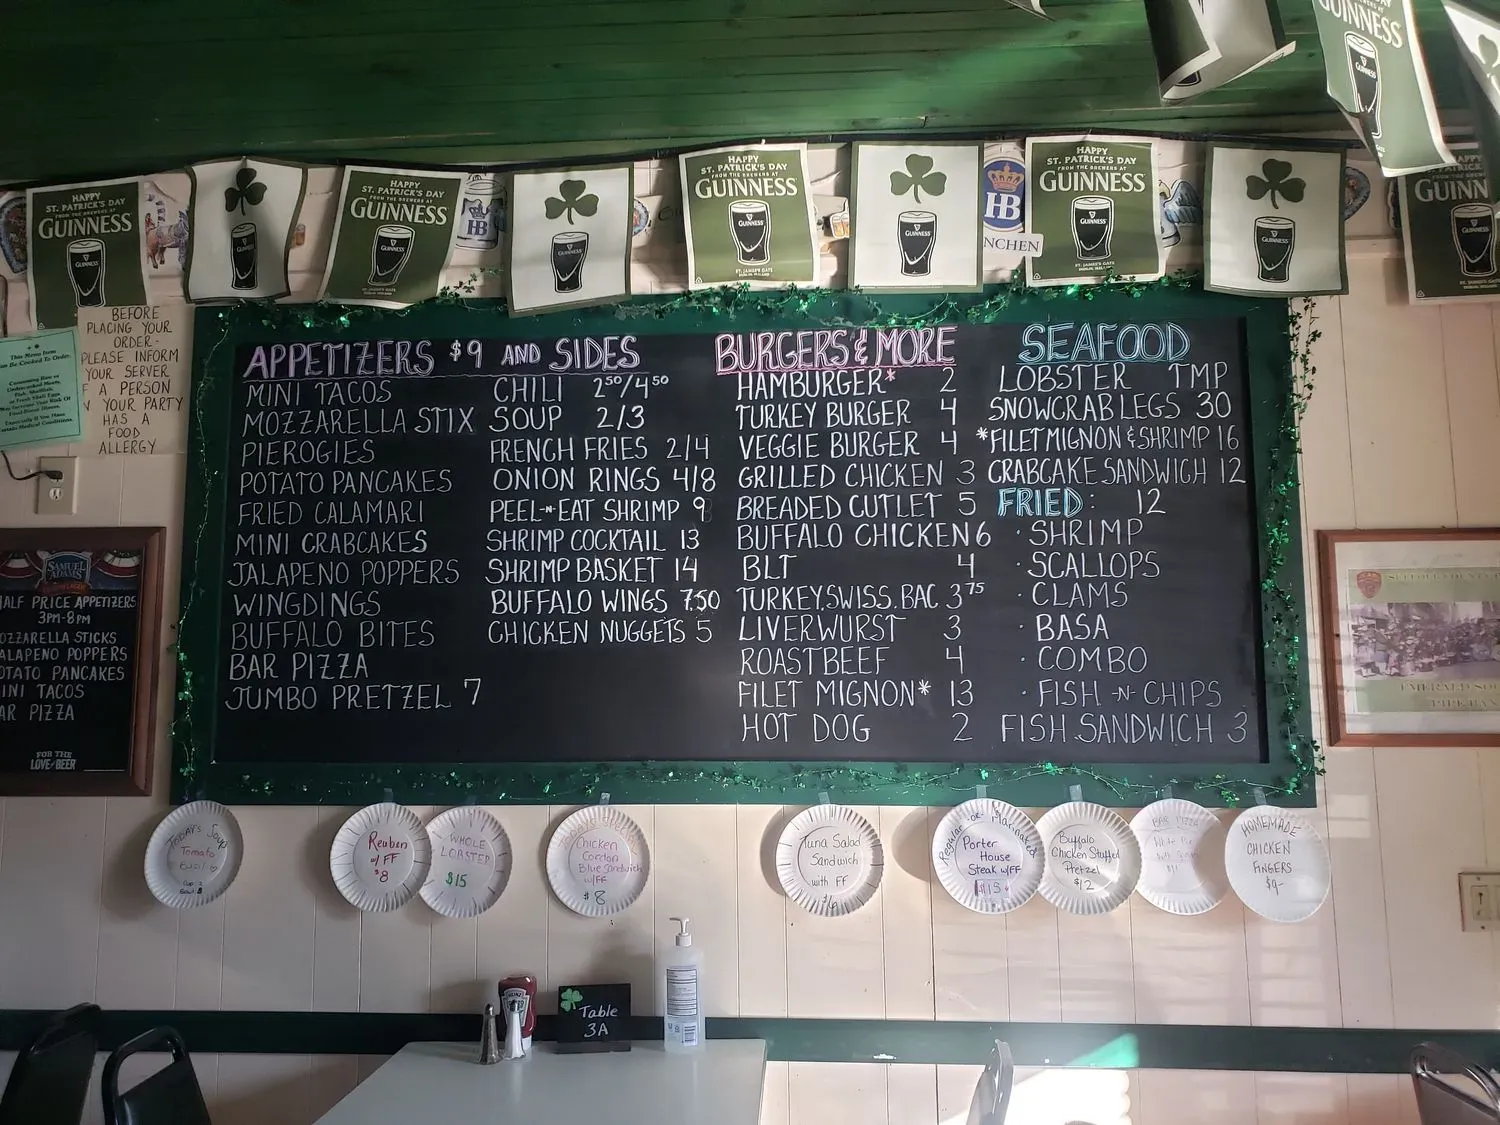 HAPPY
ST. PATRICK'S DAY
FROM THE BREWERS AT
GUINNESS
GUINNESS
GUINNESS
HAPPY
ST. PATRICK'S DAY
FROM THE BREWERS AT
GUINNESS
GUINNESS
HB
GUINNESS
HAPPY
ST. PATRICK'S DAY
FROM THE BREWERS AT
GUINNESS
GUINNESS
ST. JAMES'S GATE
DUBLIN, IRELAND
GUINNESS
HB
NCHEN
HAPPY
ST. PATRICK'S DAY
FROM THE BREWERS AT
GUINNESS
GUINNESS
ST. JAMES'S GATE
DUBLIN, IRELAND
GUINNESS
GUINNESS
GUINNESS
GUINN
BEFORE
PLACING YOUR
ORDER-
PLEASE INFORM
YOUR SERVER
IF A PERSON
IN YOUR PARTY
HAS A
FOOD
ALLERGY
This Menu Item
Can Be Cooked To Order.
SAMUEL
ADAMS
HALF PRICE APPETIZERS
3PM-8PM
OZZARELLA STICKS
ALAPENO POPPERS
OTATO PANCAKES
INI TACOS
AR PIZZA
FOR THE
LOVE of BEER
APPETIZERS $9 AND SIDES
MINI TACOS
MOZZARELLA STIX
PIEROGIES
POTATO PANCAKES
FRIED CALAMARI
MINI CRABCAKES
JALAPENO POPPERS
WINGDINGS
BUFFALO BITES
BAR PIZZA
JUMBO PRETZEL 7
CHILI 2⁵⁰/4⁵⁰
SOUP 2/3
FRENCH FRIES 2/4
ONION RINGS 4/8
PEEL-N-EAT SHRIMP 9
SHRIMP COCKTAIL 13
SHRIMP BASKET 14
BUFFALO WINGS 7.50
CHICKEN NUGGETS 5
BURGERS & MORE
HAMBURGER* 2
TURKEY BURGER 4
VEGGIE BURGER 4
GRILLED CHICKEN 3
BREADED CUTLET 5
BUFFALO CHICKEN 6
BLT 4
TURKEY.SWISS.BAC 3⁷⁵
LIVERWURST 3
ROASTBEEF 4
FILET MIGNON* 13
HOT DOG 2
SEAFOOD
LOBSTER TMP
SNOWCRAB LEGS 30
*FILET MIGNON & SHRIMP 16
CRABCAKE SANDWICH 12
FRIED: 12
· SHRIMP
· SCALLOPS
· CLAMS
· BASA
· COMBO
· FISH -N- CHIPS
FISH SANDWICH 3
TODAY'S Soup
Tomato
Basil
Reuben
w/ FF
$8
WHOLE
LOBSTER
$15
Chicken
Cordon
Blue Sandwich
w/FF
$8
Tuna Salad
Sandwich
with FF
Regular -or- Marinated
Porter
House
Steak w/FF
$15
Buffalo
Chicken Stuffed
Pretzel
$12
BAR PIZZA
HOMEMADE
CHICKEN
FINGERS
$9-
HEINZ
Table
3A